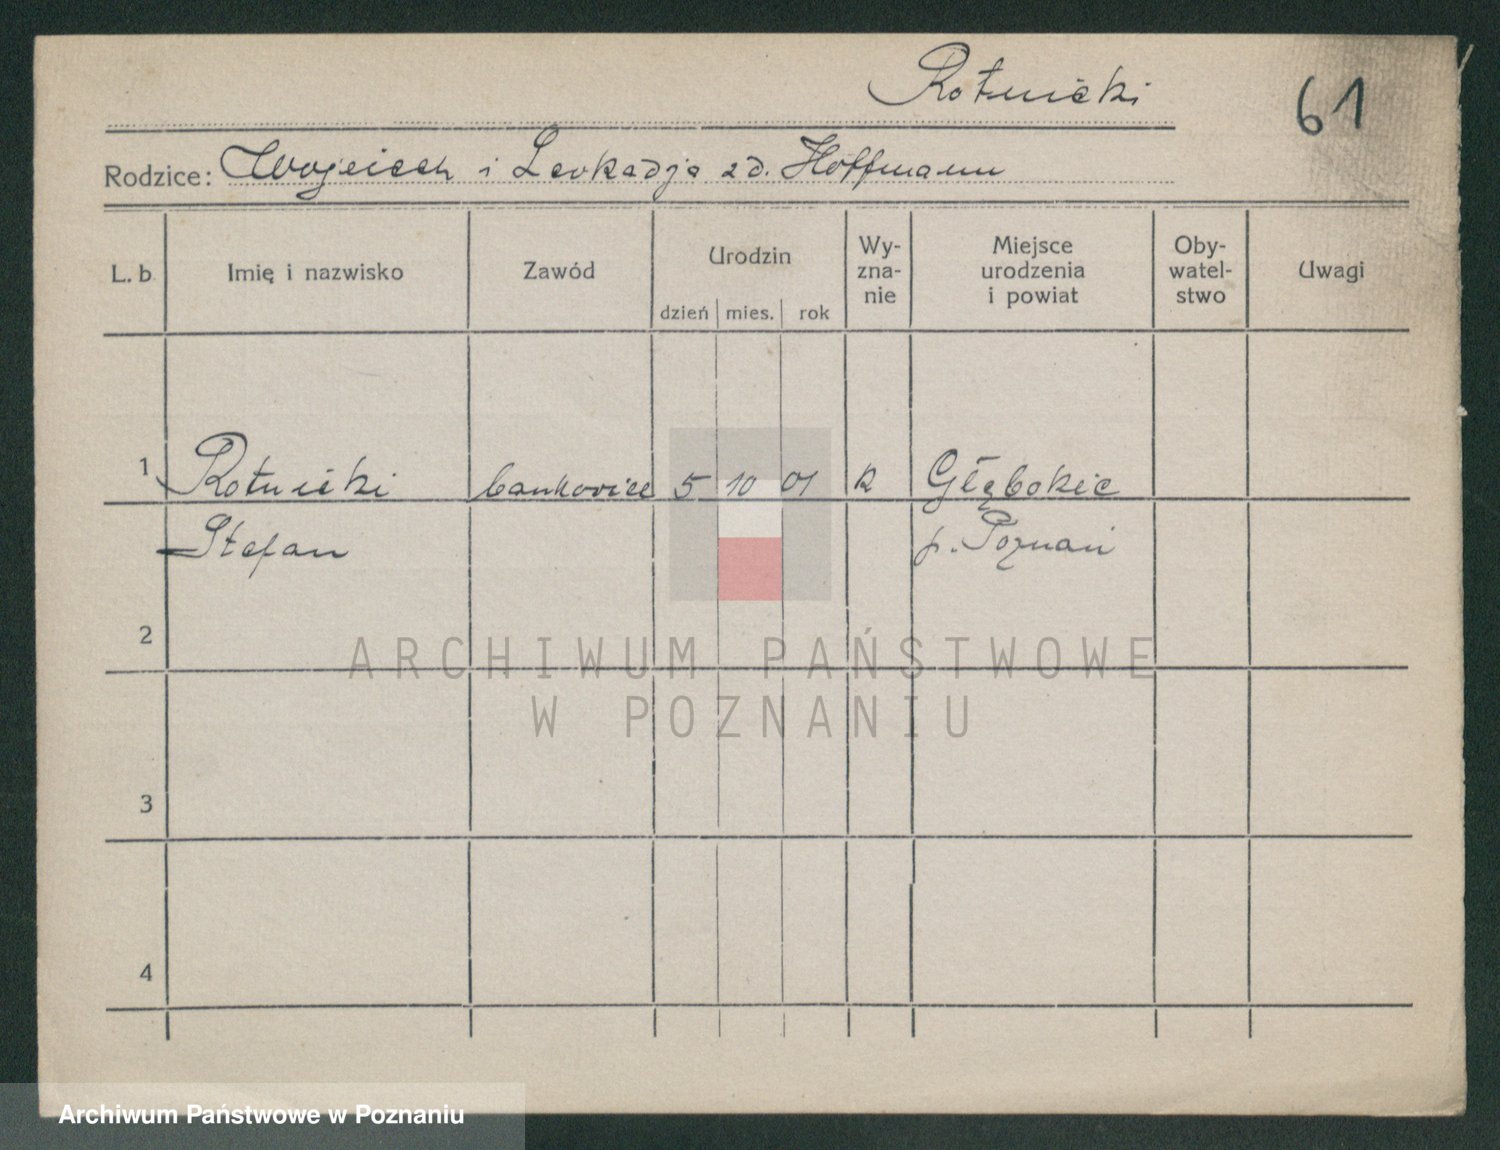 Rotnicki
61
Rodzice: Wojciech i Leokadja zd. Hoffmann
L. b. Imię i nazwisko Zawód Urodzin dzień mies. rok Wy-zna-nie Miejsce urodzenia i powiat Oby-watel-stwo Uwagi
1 Rotnicki bankowiec 5 10 01 k Głębokie
Stefan p. Poznań
2
3
4
ARCHIWUM PAŃSTWOWE
W POZNANIU
Archiwum Państwowe w Poznaniu